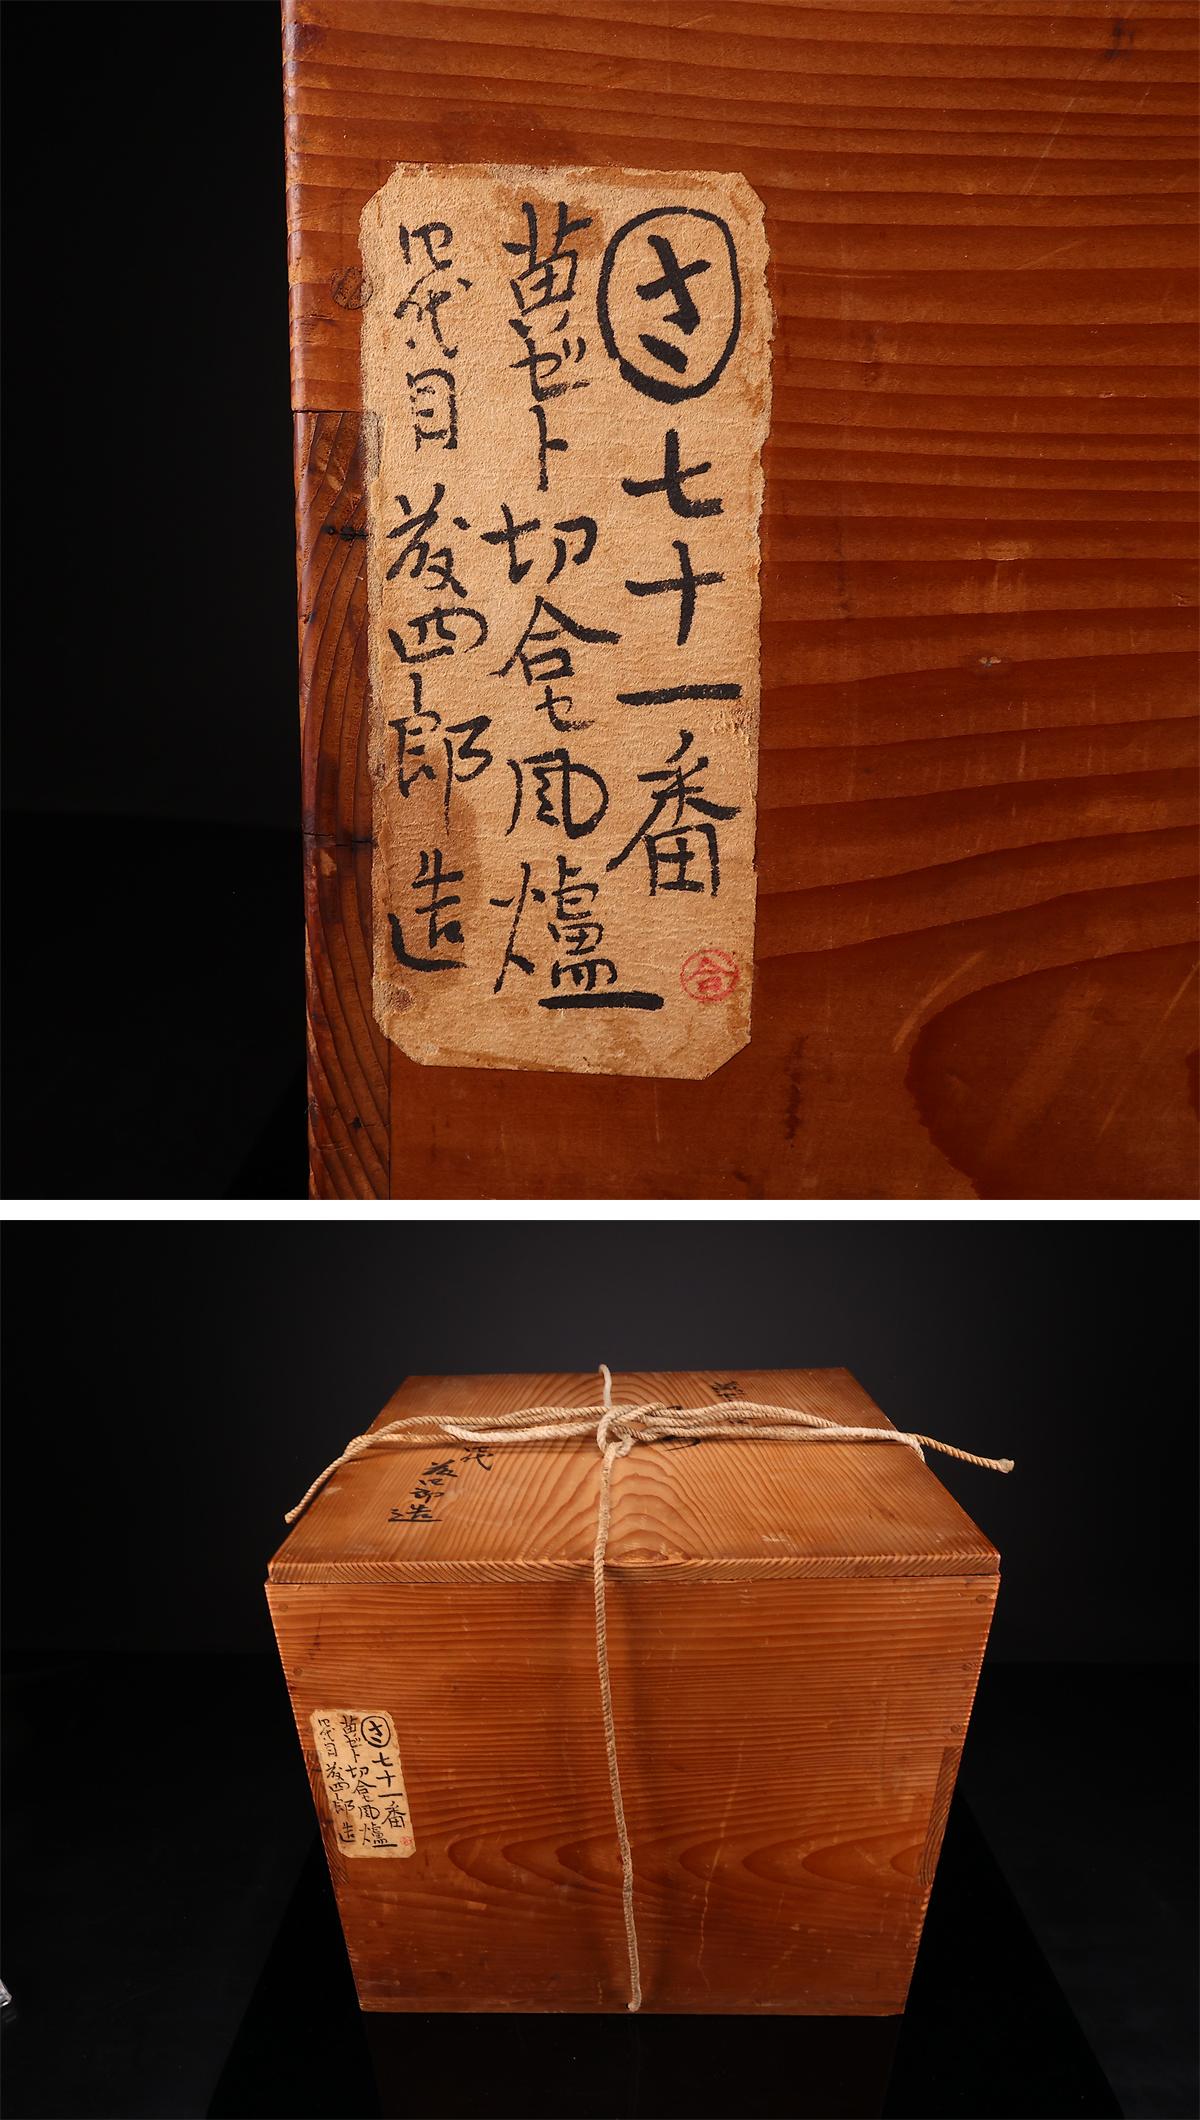 さ 七十一番
合
苗ゼト 切合セ風爐
四代目 善四郎 造
四代
善四郎
造
さ 七十一番
苗ゼト 切合セ風爐
四代目 善四郎 造